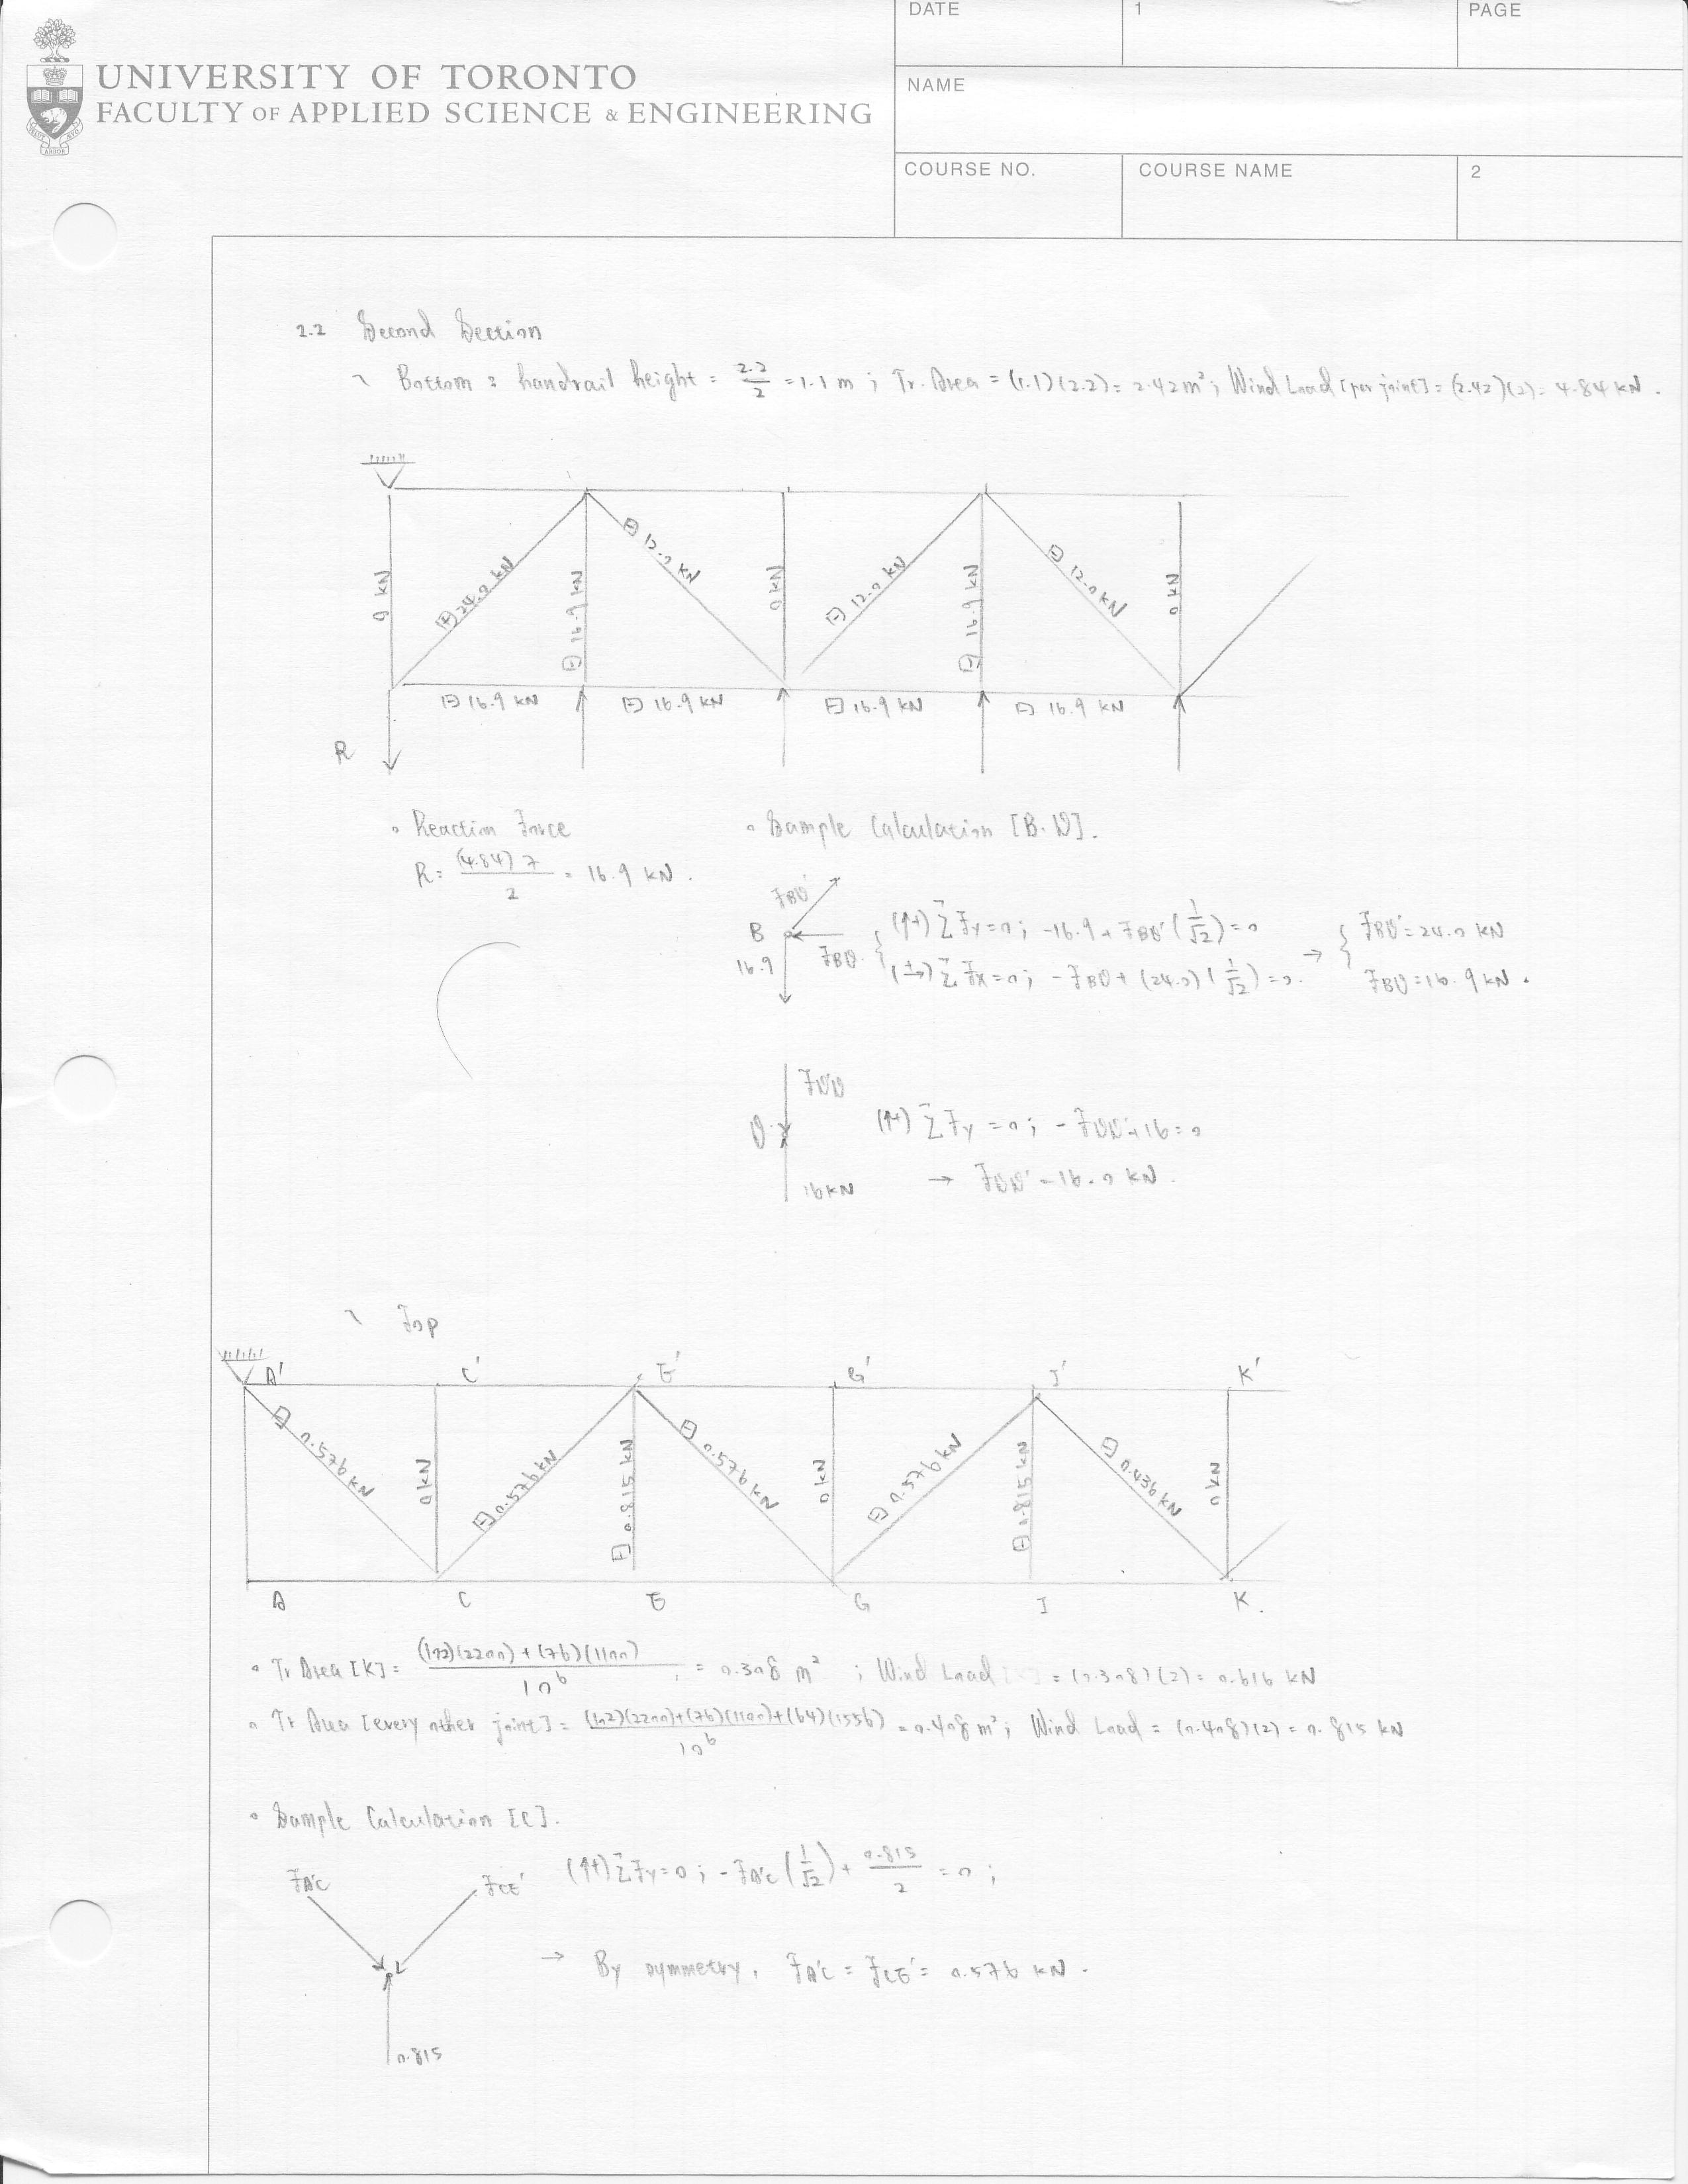 DATE 1 PAGE
UNIVERSITY OF TORONTO
FACULTY OF APPLIED SCIENCE & ENGINEERING
NAME
COURSE NO. COURSE NAME 2
2.2 Second Section
Bottom : handrail height = 2.2/2 = 1.1 m ; Tr. Area = (1.1)(2.2) = 2.42 m² ; Wind Load [per joint] = (2.42)(2) = 4.84 kN .
0 kN 24.0 kN 16.9 kN 12.0 kN 0 kN 12.0 kN 16.9 kN 12.0 kN 0 kN
16.9 kN 16.9 kN 16.9 kN 16.9 kN
R
Reaction Force Sample Calculation [B.D].
R = (4.84) 7 / 2 = 16.9 kN .
B FBD' 16.9 FBD
(↑+) ΣFy = 0 ; -16.9 + FBD' (1/√2) = 0 → FBD' = 24.0 kN
(→+) ΣFx = 0 ; -FBD + (24.0) (1/√2) = 0. FBD = 16.9 kN .
D 16 kN
(↑+) ΣFy = 0 ; -FDD' + 16 = 0
→ FDD' = 16.0 kN .
Top
A' C' E' G' I' K'
0.576 kN 0 kN 0.576 kN 0.815 kN 0.576 kN 0 kN 0.576 kN 0.815 kN 0.436 kN 0 kN
A C E G I K .
Tr Area [K] = (102)(2200) + (76)(1100) / 10⁶ = 0.308 m² ; Wind Load = (0.308)(2) = 0.616 kN
Tr Area [every other joint] = (102)(2200)+(76)(1100)+(64)(1556) / 10⁶ = 0.408 m² ; Wind Load = (0.408)(2) = 0.815 kN
Sample Calculation [C].
FA'C FCE' (↑+) ΣFy = 0 ; -FA'C (1/√2) + 0.815/2 = 0 ;
→ By symmetry, FA'C = FCE' = 0.576 kN .
0.815